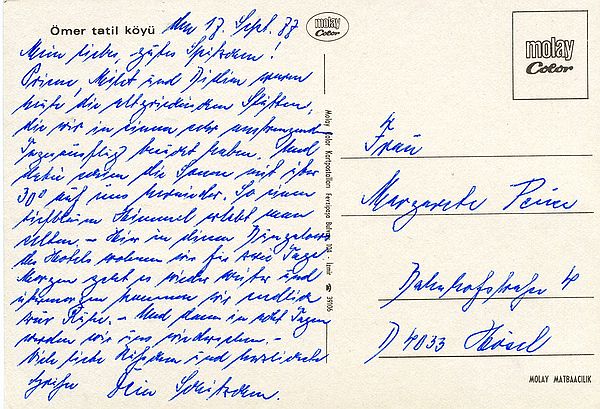 Ömer tatil köyü den 17. Sept. 87
Mein liebes, gutes Spitzchen!
Priene, Milet und Didim waren
heute die altgriechischen Stätten,
die wir in einem sehr anstrengenden
Tagesausflug besucht haben. Und
dabei schien die Sonne mit über
30° auf uns hernieder. So einen
tiefblauen Himmel erlebt man
selten. – Hier in diesen Bungalows
des Hotels wohnen wir für zwei Tage
Morgen geht es wieder weiter und
übermorgen kommen wir endlich
zur Ruhe. – Und dann in acht Tagen
werden wir uns wiedersehen. –
Viele liebe Küßchen und herzlichste
Grüße Dein Spitzchen.
molay
Color
Molay Color Kartpostalları Fevzipaşa Bulvarı 104 - İzmir ☎ 39106
molay
Color
Frau
Margarete
Bahnhofstraße 4
D 4033 Hösel
MOLAY MATBAACILIK